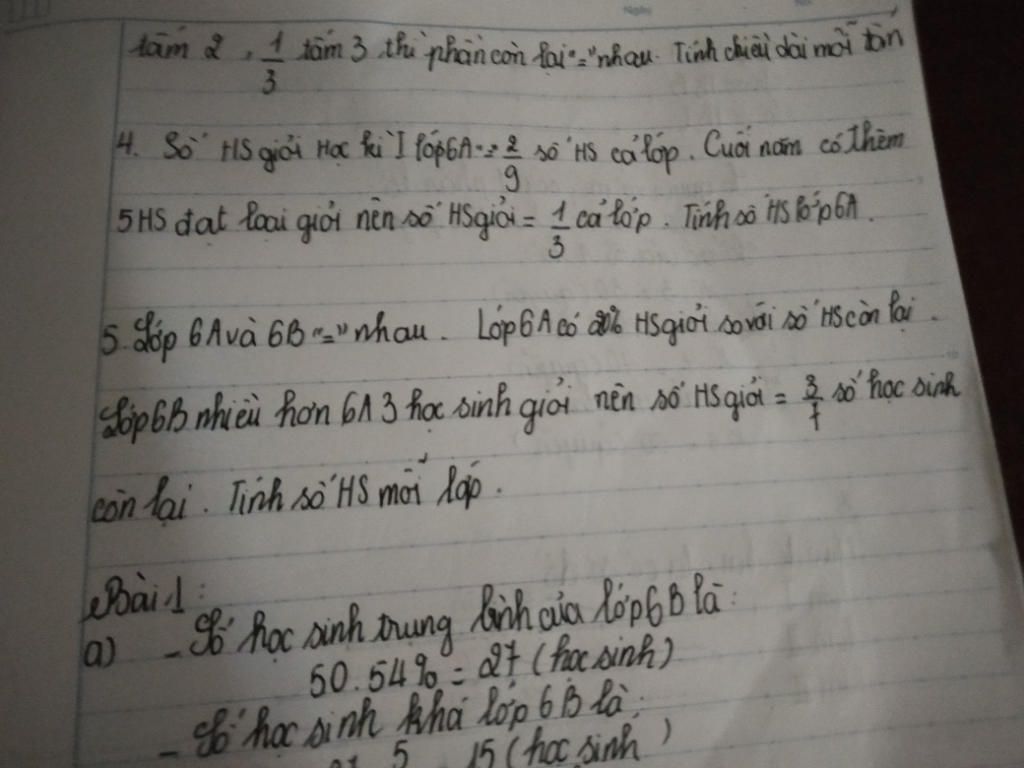 tấm 2, 1/3 tấm 3 thì phần còn lại "=" nhau. Tính chiều dài mỗi tấn
4. Số HS giỏi Học kì I lớp 6A "=" 2/9 số HS cả lớp. Cuối năm có thêm
5 HS đạt loại giỏi nên số HS giỏi = 1/3 cả lớp. Tính số HS lớp 6A.
5. Lớp 6A và 6B "=" nhau. Lớp 6A có 20% HS giỏi so với số HS còn lại.
Lớp 6B nhiều hơn 6A 3 học sinh giỏi nên số HS giỏi = 3/7 số học sinh
còn lại. Tính số HS mỗi lớp.
Bài 1:
a) - Số học sinh trung bình của lớp 6B là:
50.54% = 27 (học sinh)
- Số học sinh khá lớp 6B là:
5 15 (học sinh)